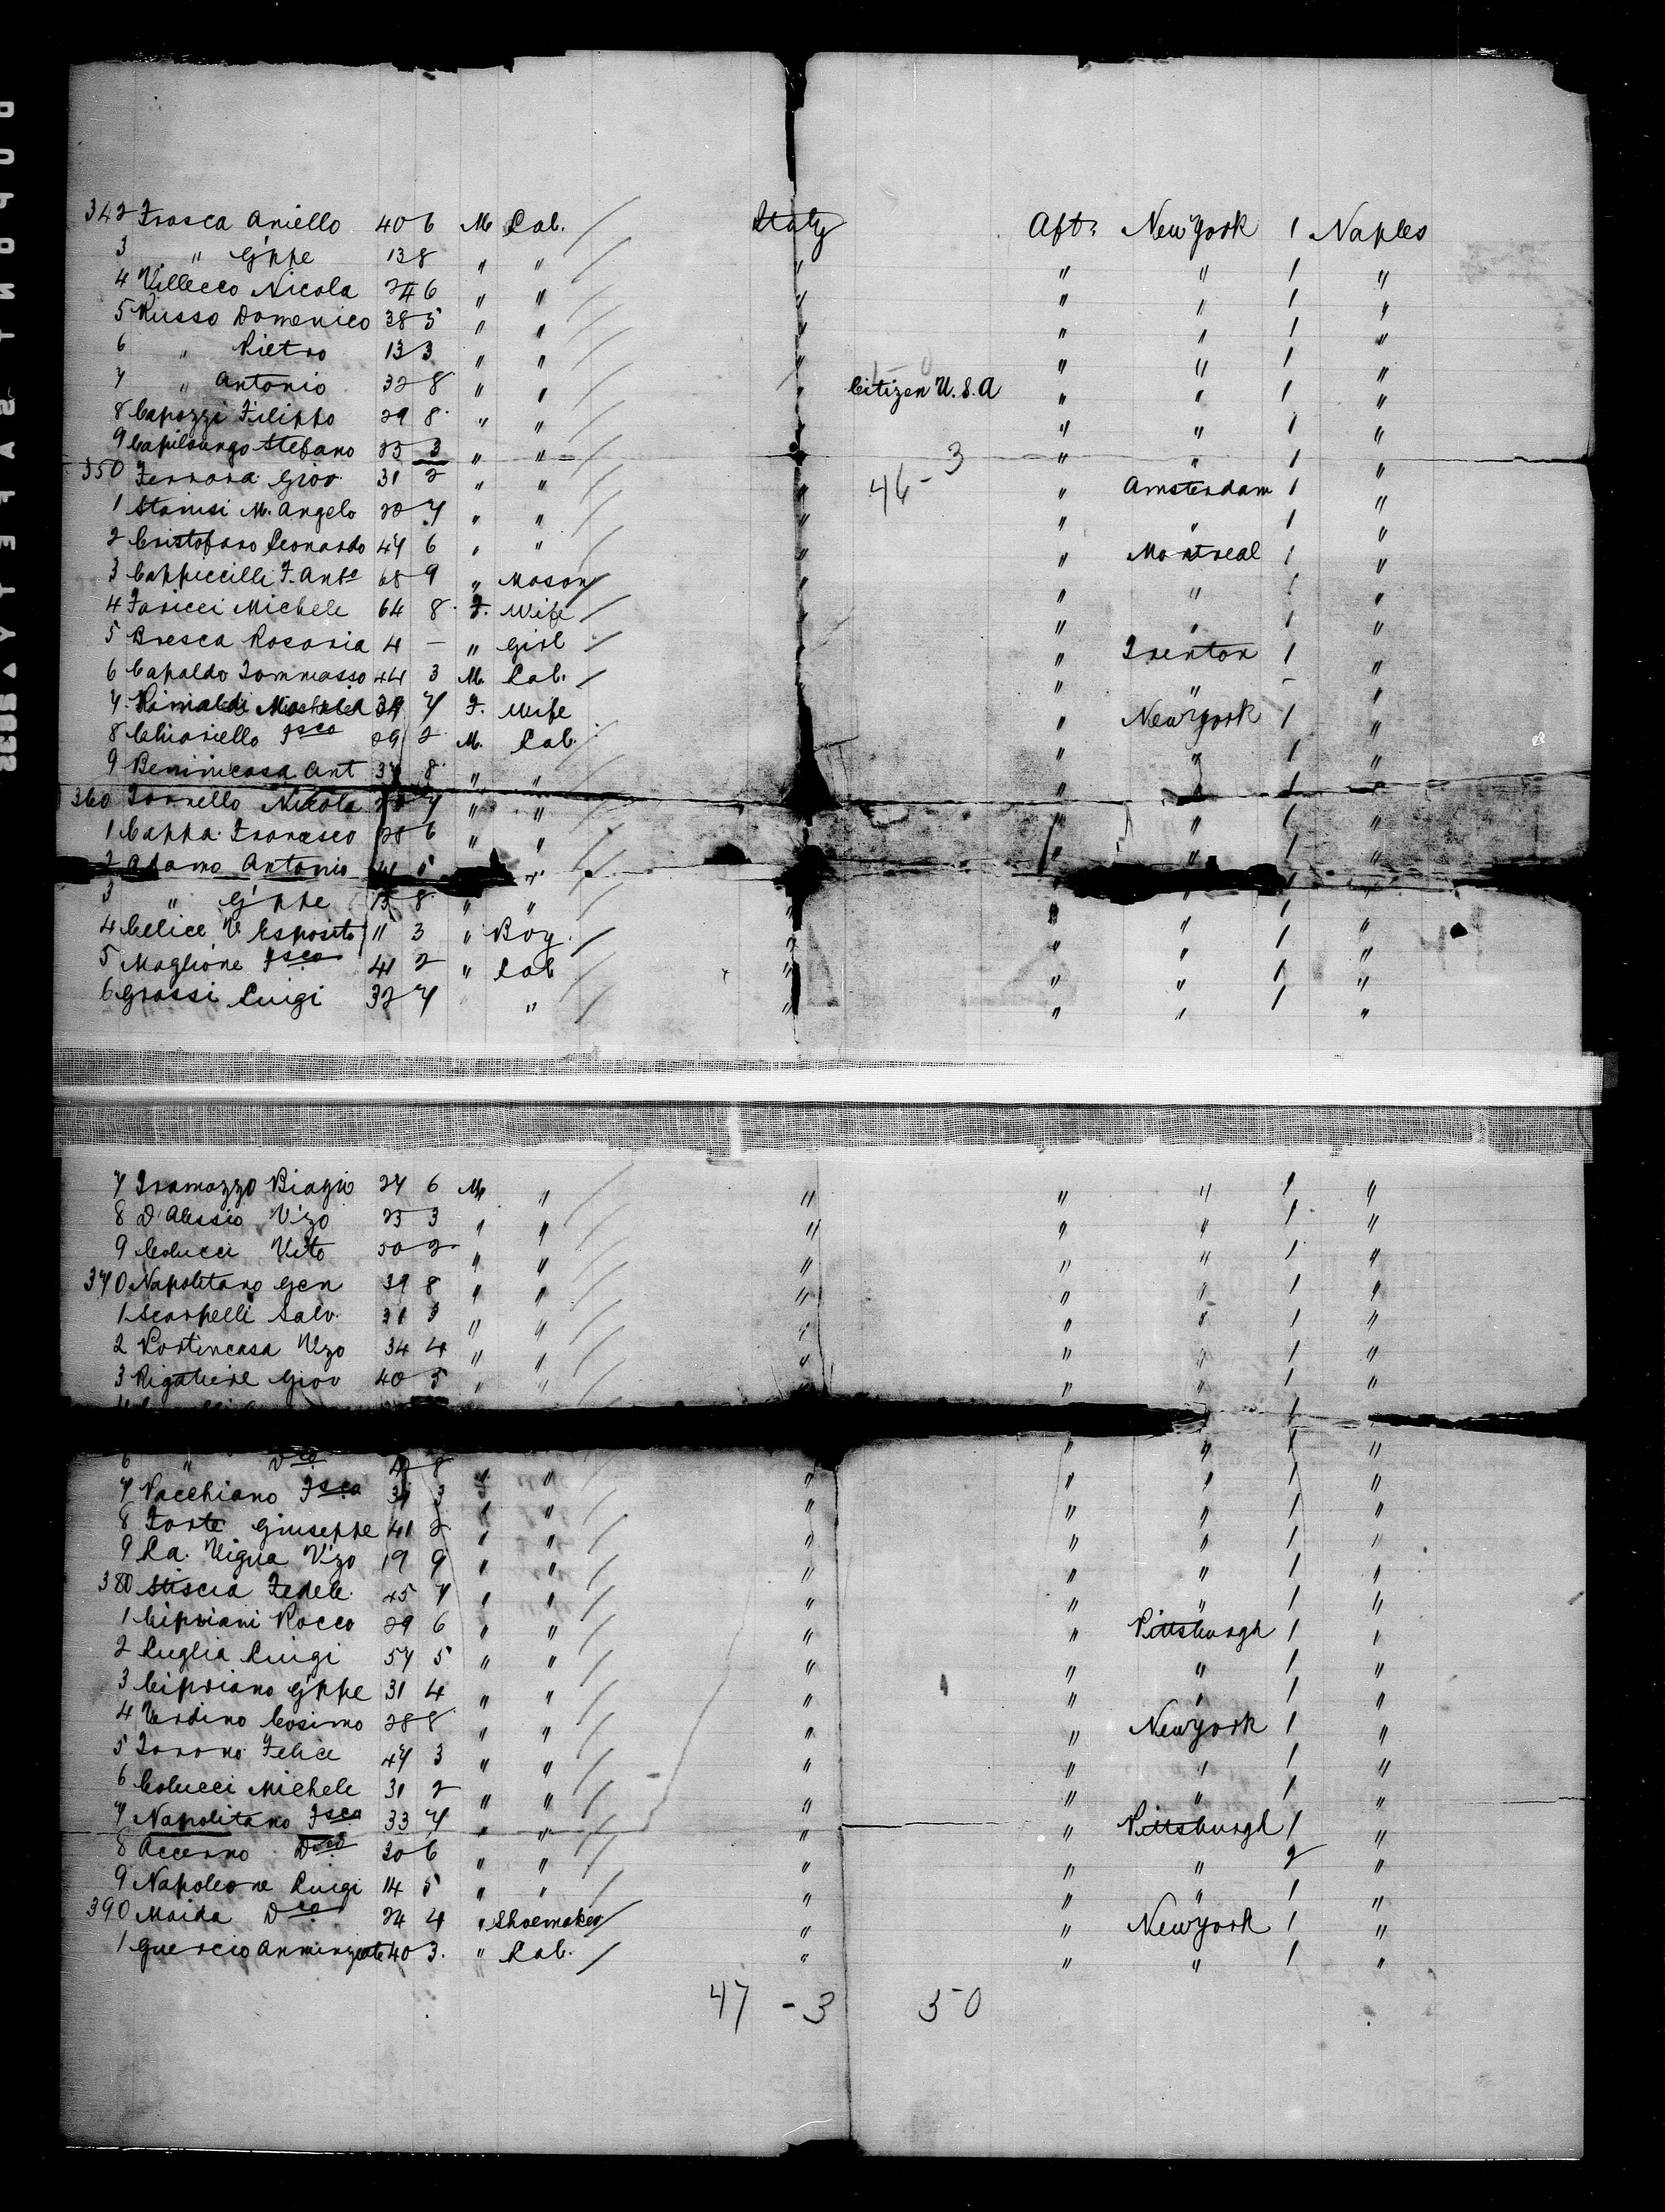 342 Frasca Aniello 40 6 M Lab. / Italy Aft: New York 1 Naples
3 " G'ppe 13 8 " " / " " " 1 "
4 Villecco Nicola 24 6 " " / " " " 1 "
5 Russo Domenico 38 5 " " / " " " 1 "
6 " Pietro 13 3 " " / " " " 1 "
7 " Antonio 32 8 " " / " Citizen U.S.A " " 1 "
8 Capozzi Filippo 29 8 " " / " " " 1 "
9 Capilongo Stefano 25 3 " " / " " " 1 "
46 - 3
350 Ferrara Giov. 31 2 " " / " " Amsterdam 1 "
1 Stanisi M. Angelo 20 7 " " / " " " 1 "
2 Cristofaro Leonardo 47 6 " " / " " Montreal 1 "
3 Cappiccilli F. Ant 68 9 " Mason / " " " 1 "
4 Faricci Michele 64 8 F. Wife / " " " 1 "
5 Bresca Rosaria 4 — " Girl / " " Trenton 1 "
6 Capaldo Tommasso 44 3 M. Lab. / " " " - "
7 Rinaldi 39 7 F. Wife " " New York 1 "
8 Chiariello Fsco 29 2 M. Lab. / " " " 1 "
9 Benincasa Ant 37 8 " " " " " 1 "
360 Iannello Nicola 7 " " / " " " 1 "
1 Cappa Francesco 28 6 " " / " " " 1 "
2 Adamo Antonio 41 5 " / " 1 "
3 " G'ppe 13 8 " " / " " " 1 "
4 Celice V. Esposito 11 3 " Boy / " " " 1 "
5 Maglione Fsco 41 2 " Lab / " " " 1 "
6 Grassi Luigi 32 7 " / " " " 1 "
7 Tramazzo Biagio 27 6 M. " / " " " 1 "
8 D'Alessio V'zo 23 3 " " / " " " 1 "
9 Colucci Vito 50 2 " " / " " " 1 "
370 Napolitano Gen 39 8 " " / " " " 1 "
1 Scarpelli Salv. 31 3 " " / " " " 1 "
2 Portincasa V'zo 34 4 " " / " " " 1 "
3 Rigatiere Giov 40 5 " " / " " " 1 "
6 " Dco 8 " " / " " " 1 "
7 Vacchiano Fsco 31 3 " " / " " " 1 "
8 Forte Giuseppe 41 2 " " / " " " 1 "
9 La Vigna V'zo 19 9 " " / " " " 1 "
380 Stiscia Fedele 45 7 " " / " " " 1 "
1 Cipriani Rocco 29 6 " " / " " Pittsburgh 1 "
2 Luglia Luigi 57 5 " " / " " " 1 "
3 Cipriano G'ppe 31 4 " " / " " " 1 "
4 Verdino Cosimo 28 8 " " / " " New York 1 "
5 Iarono Felice 47 3 " " / " " " 1 "
6 Colucci Michele 31 2 " " / " " " 1 "
7 Napolitano Fsco 33 7 " " / " " Pittsburgh 1 "
8 Accerno Dco 30 6 " " / " " " 2 "
9 Napoleone Luigi 14 5 " " / " " " 1 "
390 Maida Dco 24 4 " Shoemaker / " " New York 1 "
1 Guercio Annunziata 40 3. " Lab. / " " " 1 "
47 - 3 50